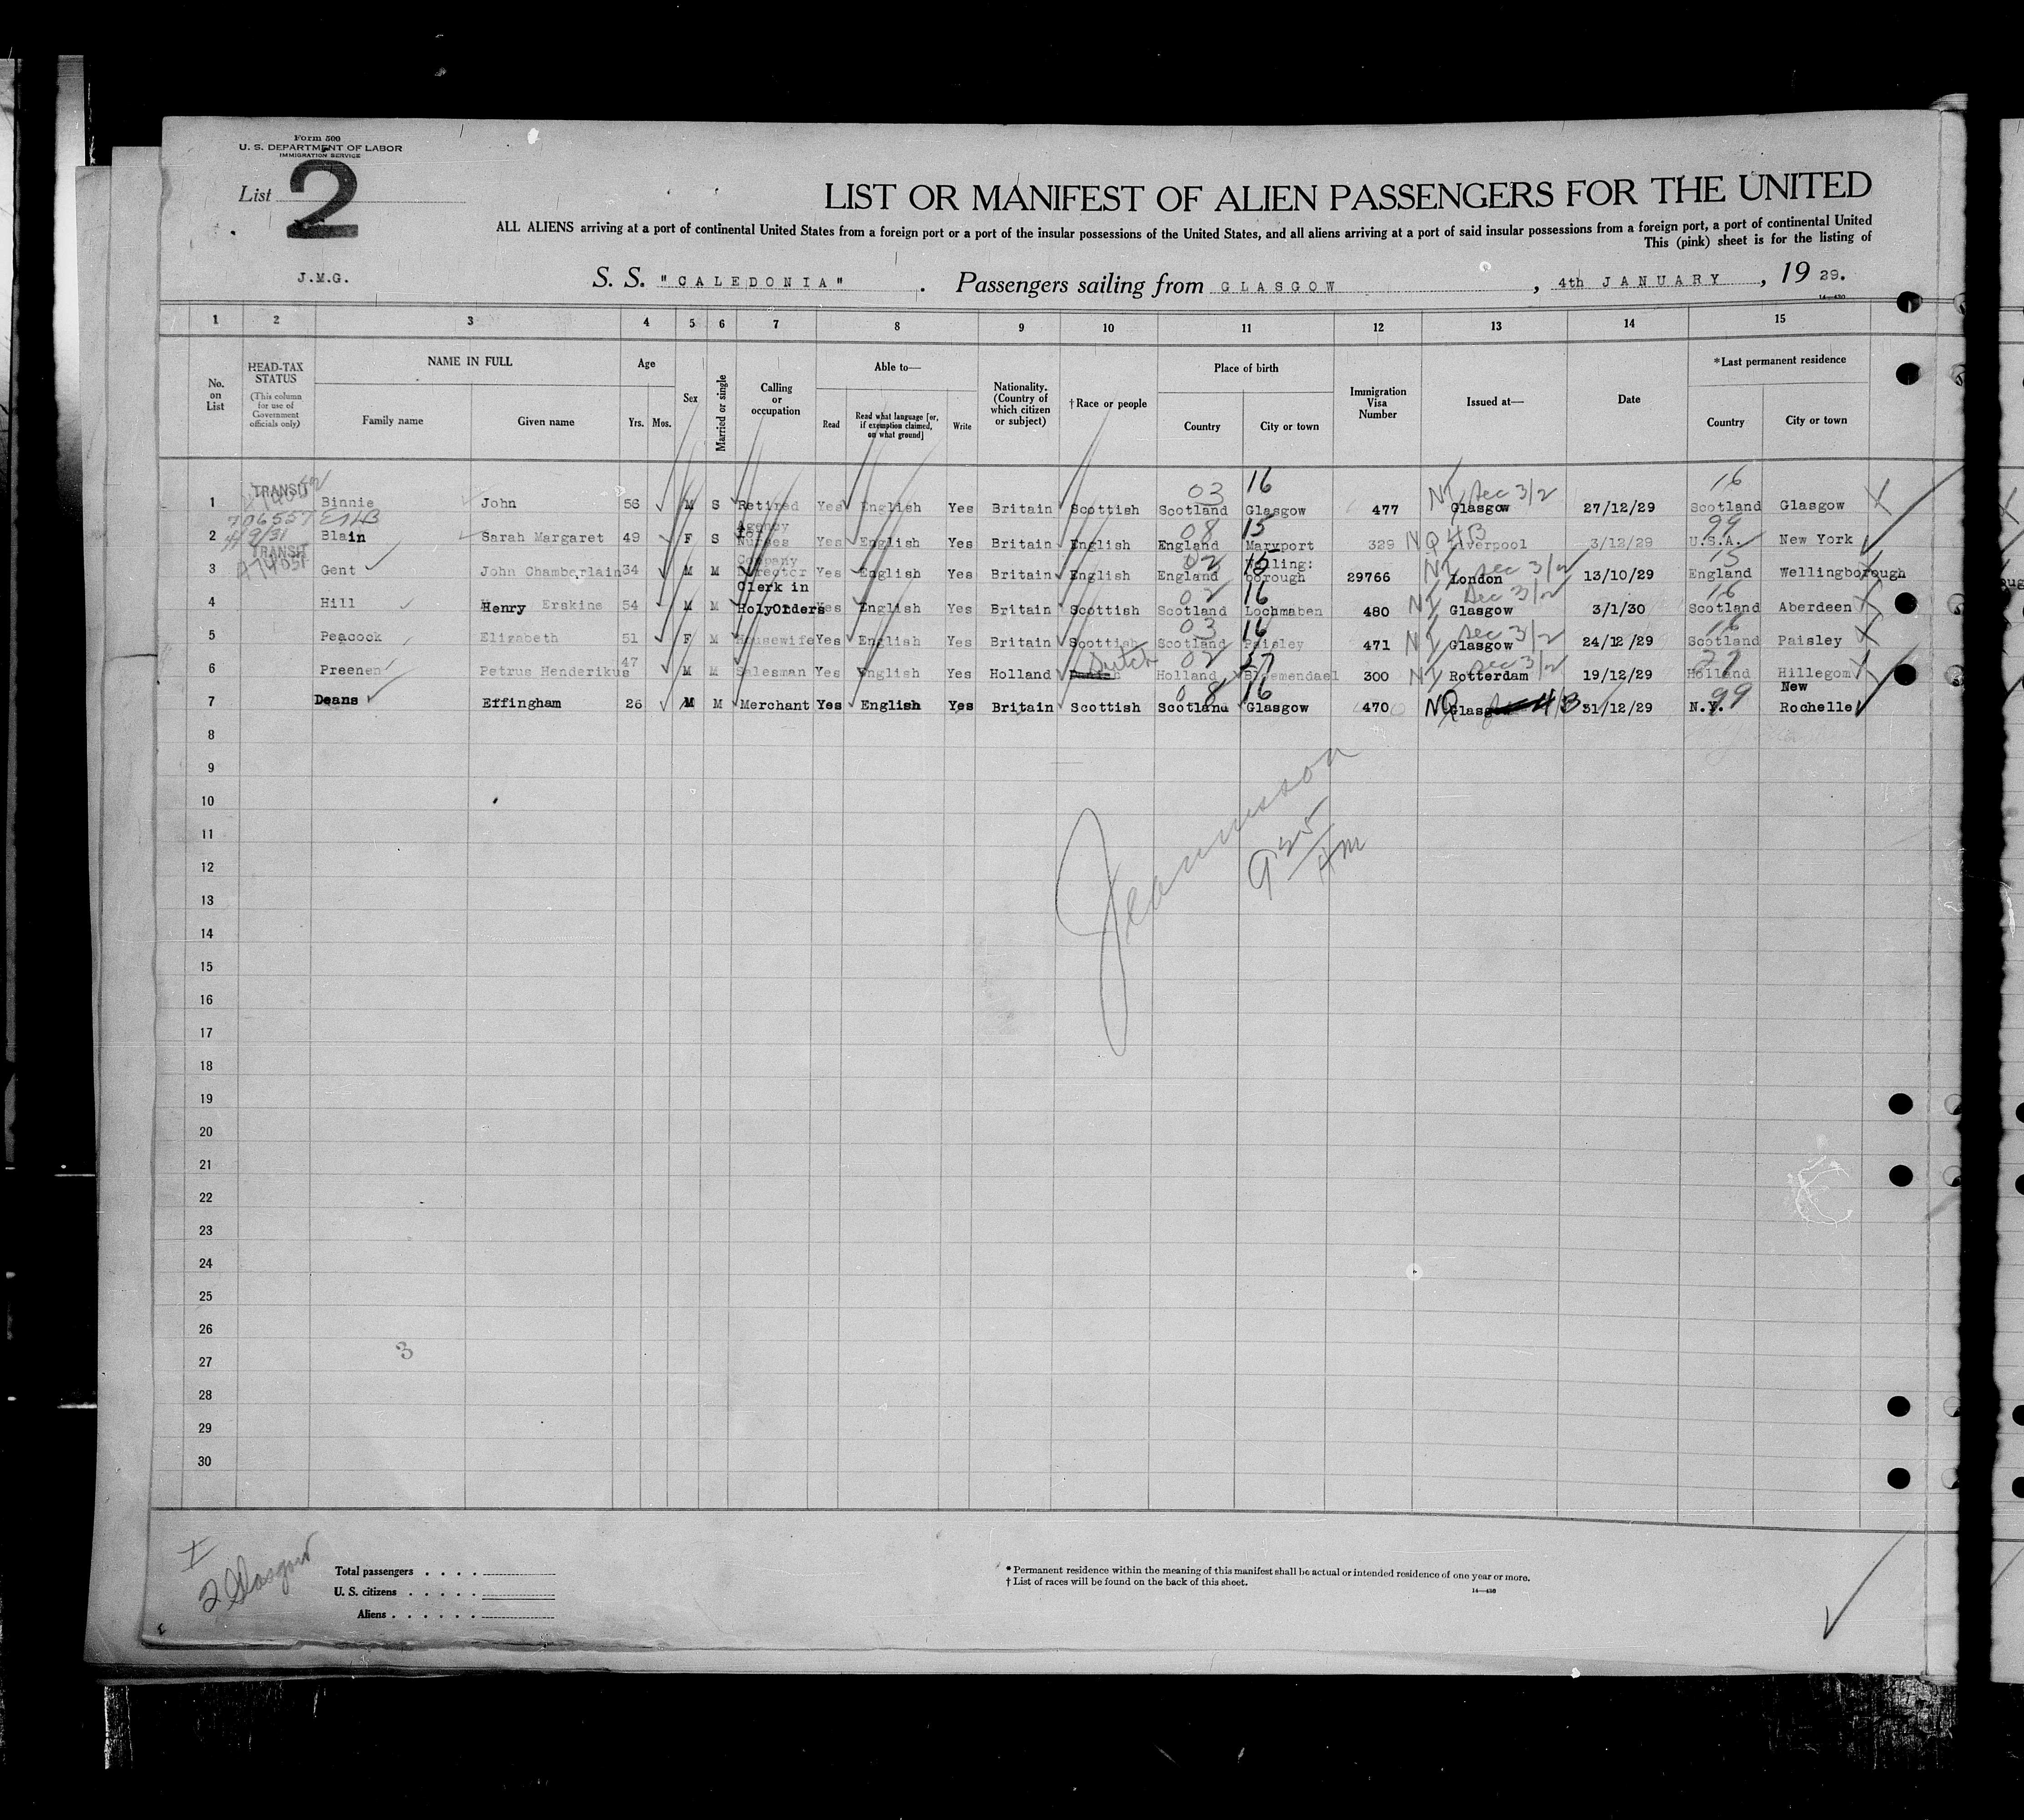 Form 500
U. S. DEPARTMENT OF LABOR
IMMIGRATION SERVICE
List 2
LIST OR MANIFEST OF ALIEN PASSENGERS FOR THE UNITED
ALL ALIENS arriving at a port of continental United States from a foreign port or a port of the insular possessions of the United States, and all aliens arriving at a port of said insular possessions from a foreign port, a port of continental United
This (pink) sheet is for the listing of
J.M.G. S. S. "CALEDONIA" . Passengers sailing from GLASGOW , 4th JANUARY , 19 29.
14—430
1 2 3 4 5 6 7 8 9 10 11 12 13 14 15
No. on List
HEAD-TAX STATUS (This column for use of Government officials only)
NAME IN FULL
Family name Given name
Age
Yrs. Mos.
Sex
Married or single
Calling or occupation
Able to—
Read Read what language [or, if exemption claimed, on what ground] Write
Nationality. (Country of which citizen or subject)
† Race or people
Place of birth
Country City or town
Immigration Visa Number
Issued at—
Date
* Last permanent residence
Country City or town
TRANSIT 03 16 NI sec 3/2 16
1 Binnie John 56 M S Retired Yes English Yes Britain Scottish Scotland Glasgow 477 Glasgow 27/12/29 Scotland Glasgow
706557 Agency for 08 15 NQ 4B 99
2 Blain Sarah Margaret 49 F S Nurses Yes English Yes Britain English England Maryport 329 Liverpool 3/12/29 U.S.A. New York
TRANSIT Company 02 15 Welling: NI sec 3/2 15
3 Gent John Chamberlain 34 M M Director Yes English Yes Britain English England borough 29766 London 13/10/29 England Wellingborough
Clerk in 02 16 NI sec 3/2 16
4 Hill Henry Erskine 54 M M Holy Orders Yes English Yes Britain Scottish Scotland Lochmaben 480 Glasgow 3/1/30 Scotland Aberdeen
03 16 NI sec 3/2 16
5 Peacock Elizabeth 51 F M Housewife Yes English Yes Britain Scottish Scotland Paisley 471 Glasgow 24/12/29 Scotland Paisley
Dutch 02 27 NI sec 3/2 27
6 Preenen Petrus Henderikus 47 M M Salesman Yes English Yes Holland Holland Bloemendael 300 Rotterdam 19/12/29 Holland Hillegom
08 16 NQ 4B 99 New
7 Deans Effingham 26 M M Merchant Yes English Yes Britain Scottish Scotland Glasgow 470 Glasgow 31/12/29 N.Y. Rochelle
8
9
10
11
12
13
14
15
16
17
18
19
20
21
22
23
24
25
26
27
3
28
29
30
2 Glasgow
Total passengers
U. S. citizens
Aliens
* Permanent residence within the meaning of this manifest shall be actual or intended residence of one year or more.
† List of races will be found on the back of this sheet.
14—430